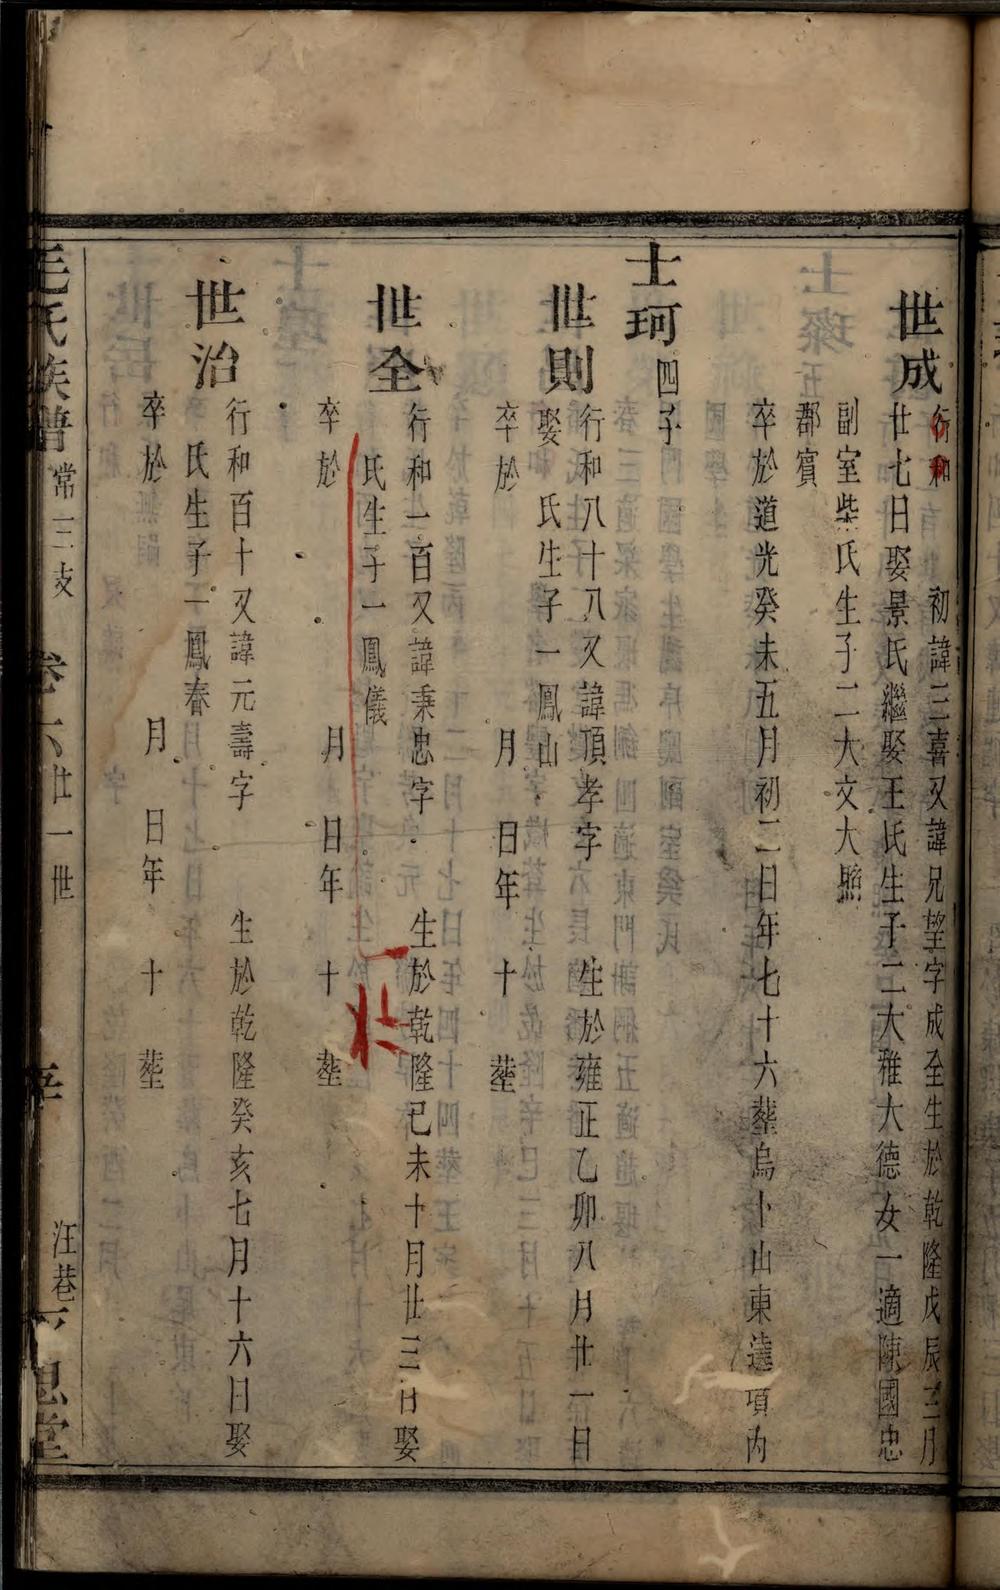 世成
行和　初諱三喜又諱兄望字成至生於乾隆戊辰三月
廿七日娶景氏繼娶王氏生子二大雅大德女一適陳國忠
副室柴氏生子二大文大照
鄒賓
卒於道光癸未五月初二日年七十六塟烏卜山東達項內
士珂四子
世則
行和八十八又諱頂孝字　生於雍正乙卯八月廿一日
娶　氏生子一鳳山
卒於　月　日年　十　塟
世全
行和一百又諱秉忠字　生於乾隆已未十月廿三日娶
氏生子一鳳儀
卒於　月　日年　十　塟
世治
行和百十又諱元壽字　生於乾隆癸亥七月十六日娶
氏生子一鳳春
卒於　月　日年　十　塟
毛氏族譜　常三支　卷六廿一世　汪巷　思堂